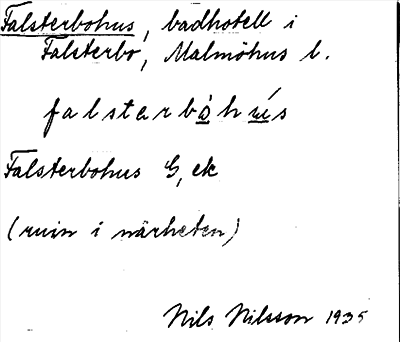 Falsterbohus, badhotell i
Falsterbo, Malmöhus l.
falsterbo̲hú̲s
Falsterbohus G, ek
(ruin i närheten)
Nils Nilsson 1935